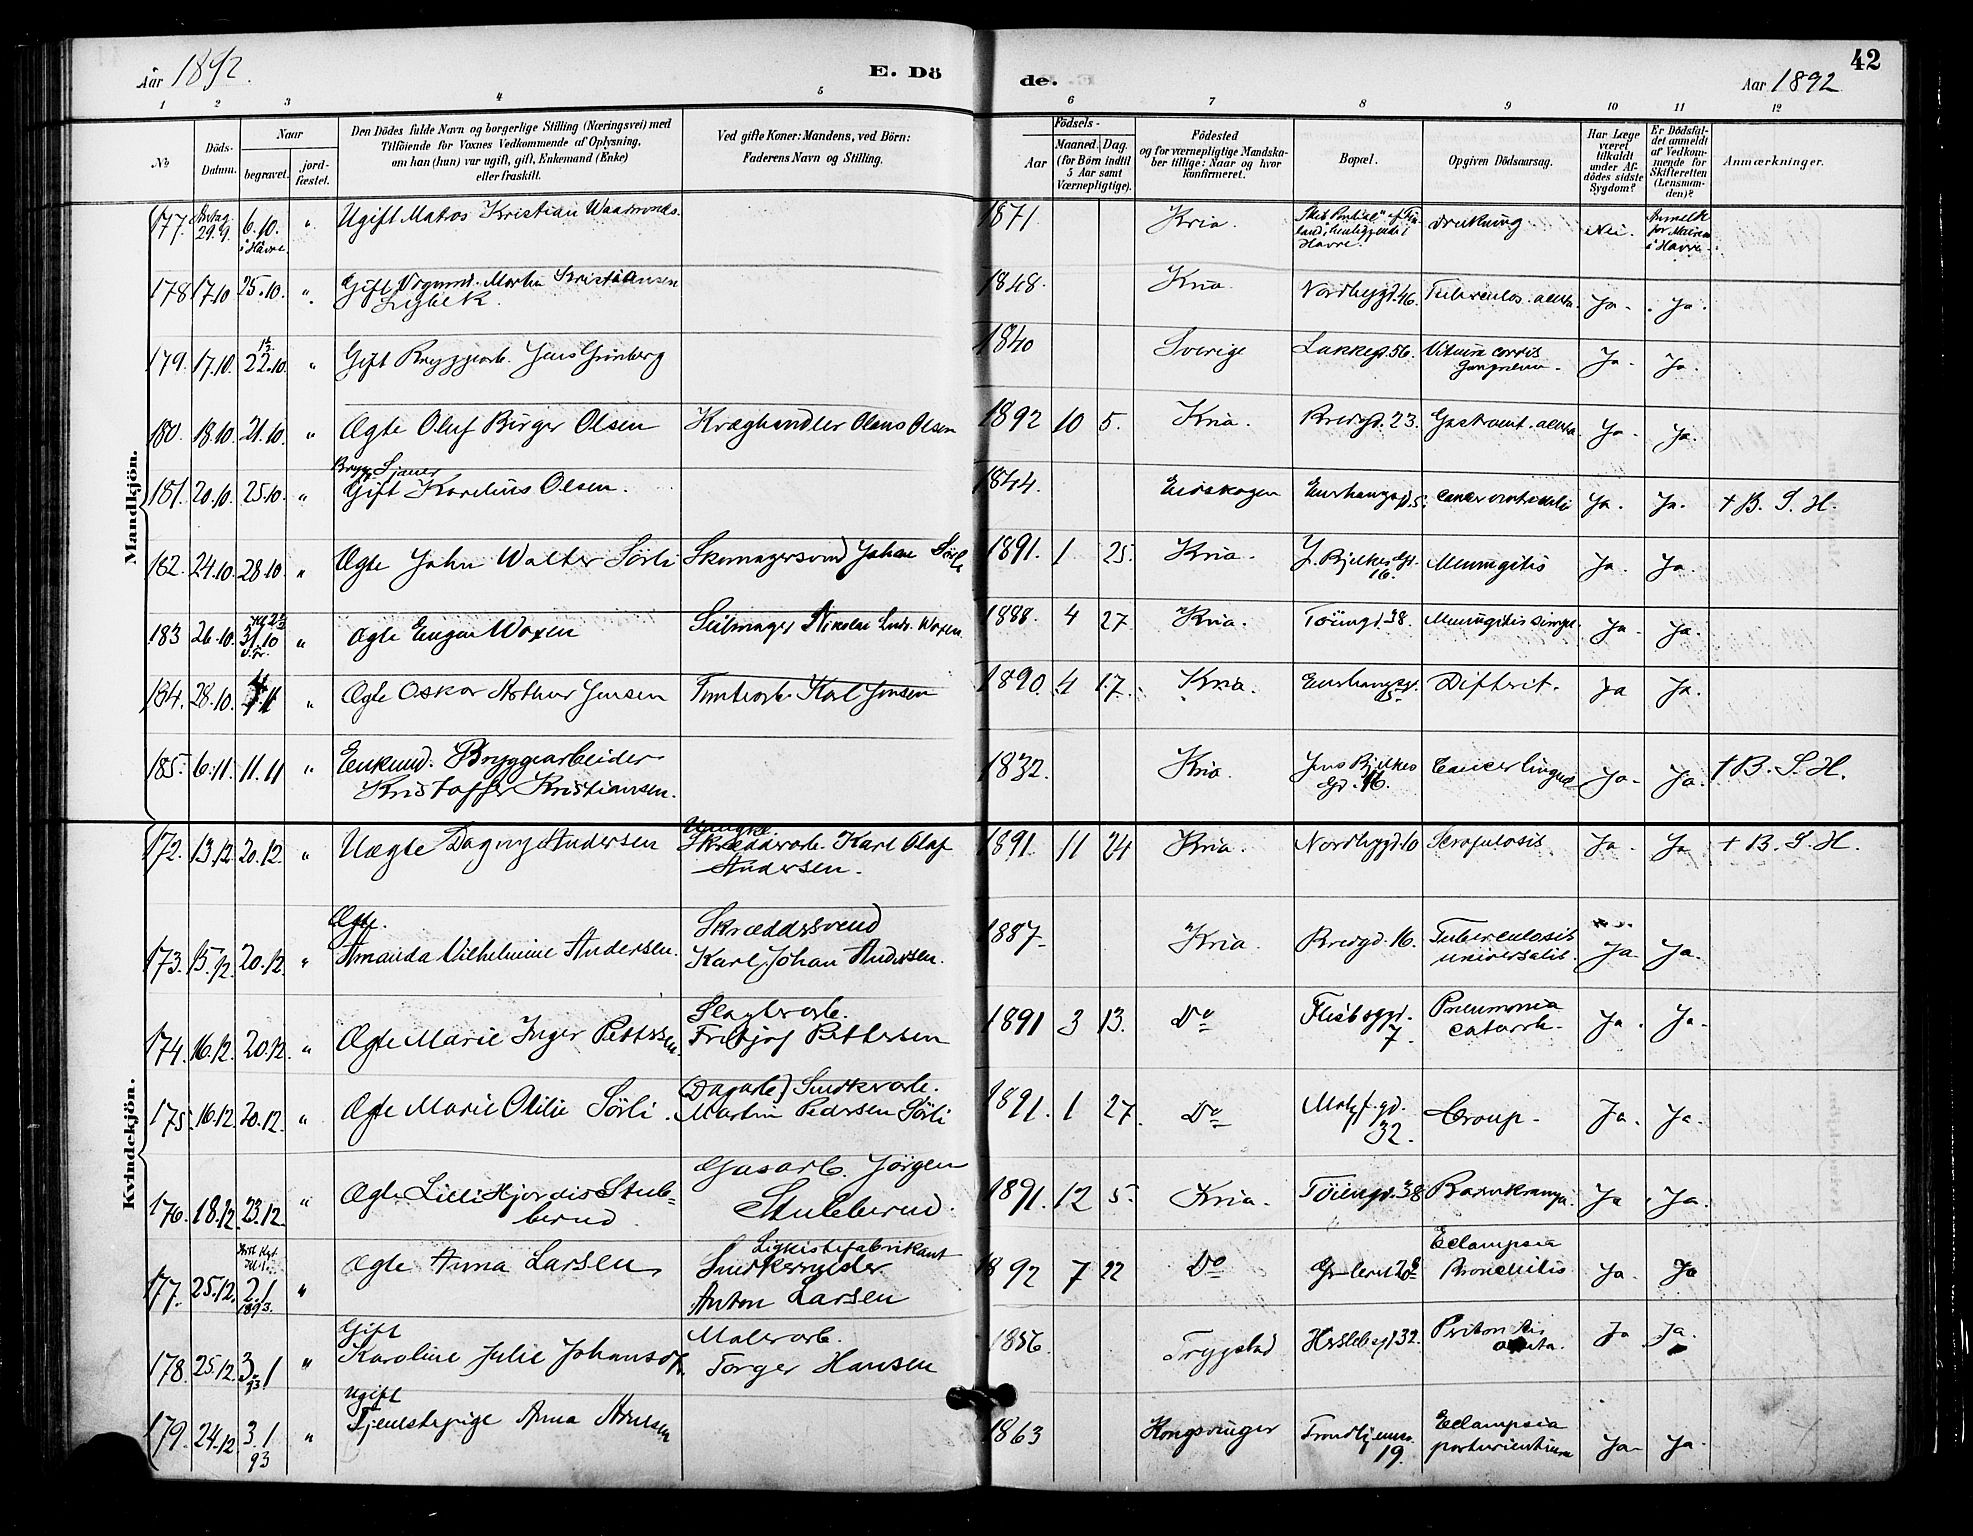 42
Aar 1892.
E. Dö
de.
Aar 1892
1 2 3 4 5 6 7 8 9 10 11 12
No
Döds-Datum.
Naar
begravet.
jord-fæstet.
Den Dödes fulde Navn og borgerlige Stilling (Næringsvei) med
Tilföiende for Voxnes Vedkommende af Oplysning,
om han (hun) var ugift, gift, Enkemand (Enke)
eller fraskilt.
Ved gifte Koner: Mandens, ved Börn:
Faderens Navn og Stilling.
Födsels-
Aar
Maaned. Dag.
(for Börn indtil
5 Aar samt
Værnepligtige).
Födested
og for værnepligtige Mandska-
ber tillige: Naar og hvor
konfirmeret.
Bopæl.
Opgiven Dödsaarsag.
Har Læge
været
tilkaldt
under Af-
dödes sidste
Sygdom?
Er Dödsfal-
det anmeldt
af Vedkom-
mende for
Skifteretten
(Lensman-
den)?
Anmærkninger.
Mandkjön.
177. 29.9. 6.10. i Havre. " Ugift Matos Kristian 1871 Kria. Havre. drukning Nei. Anmeldt for i Havre.
178 17.10 25.10. " Gift Vognmd. Martin Kristiansen 1848. Kria Nordbygd. 46. Tuberculos. acuta. Ja. Ja.
179. 17.10. 22.10. " Gift Bryggearb. Jens Grönberg 1840 Sverige Lakkegd. 56. Vitium cordis Ja. Ja.
180. 18.10. 21.10. " Ægte Oluf Birger Olsen Kræghandler Olaus Olsen 1892 10 5. Kria. Bredgd. 23. Gastroent. acuta Ja. Ja.
181. 20.10. 25.10. " Gift Karelius Olsen. 1844. Eidskogen cancer ventriculi Ja. Ja. + B. S. H.
182. 24.10. 28.10. " Ægte John Walter Sörli Skomagersvend Johan Sörli 1891. 1 25. Kria. J. Bjelkes gt. 16. Meningitis Ja. Ja.
183 26.10. 31.10 " Ægte Eugen Woxen Seilmager Nikolai Woxen. 1888. 4 27. Kria. Töiengd. 38. Meningitis simpl. Ja. Ja.
184. 28.10. 4.11 " Ægte Oskar Arthur Jensen Tomtearb. Karl Jensen 1890. 4 17. Kria. Difterit. Ja Ja.
185. 6.11. 11.11 " Enkemd. Bryggearbeider
Kristoffer Kristiansen. 1832. Kria. Jens Bjelkes gd. 16. Cancer linguæ Ja. Ja. + B. S. H.
Kvindekjön.
172. 13.12. 20.12. " Uægte Dagny Andersen Skrædderarb. Karl Olaf
Andersen. 1891. 11 24 Kria. Nordbygd. 10 Scrofulosis Ja. Ja + B. S. H.
173. 15.12. 20.12. " Ægte
Amanda Vilhelmine Andersen. Skræddersvend
Karl Johan Andersen. 1887. Kria. Bredgd. 16. Tuberculosis
universalis. Ja. Ja.
174. 16.12. 20.12. " Ægte Marie Inger Pettersen. Slagterarb.
Fritjof Pettersen 1891 3 13. Do Flisbygd. 7. Pneumonia
catarrh. Ja. Ja.
175. 16.12. 20.12. " Ægte Marie Otilie Sörli. (Dagarb.) Snedkerarb.
Martin Pedersen Sörli 1891. 1 27. Do 32. Croup. Ja. Ja.
176. 18.12. 23.12. " Ægte Lilli Hjordis Stub-
berud Gasarb. Jörgen
Stubberud. 1891. 12 5. Kria. Töiengd. 38 Ja Ja.
177. 25.12. 2.1 1893. " Ægte Anna Larsen Ligkistefabrikant
Anton Larsen 1892 7 22 Do Eclampsia
Bronchitis Ja. Ja
178. 25.12. 3.1 93 " Gift
Karoline Julie Johansdt. Malerarb.
Torger Hansen 1856. Trygstad Herslebsgd. 32. Ja Ja.
179. 24.12 3.1 93 " Ugift
Tjenestepige Anna Arnesen 1863 Kongsvinger 19. Eclampsia
parturientium Ja. Ja.